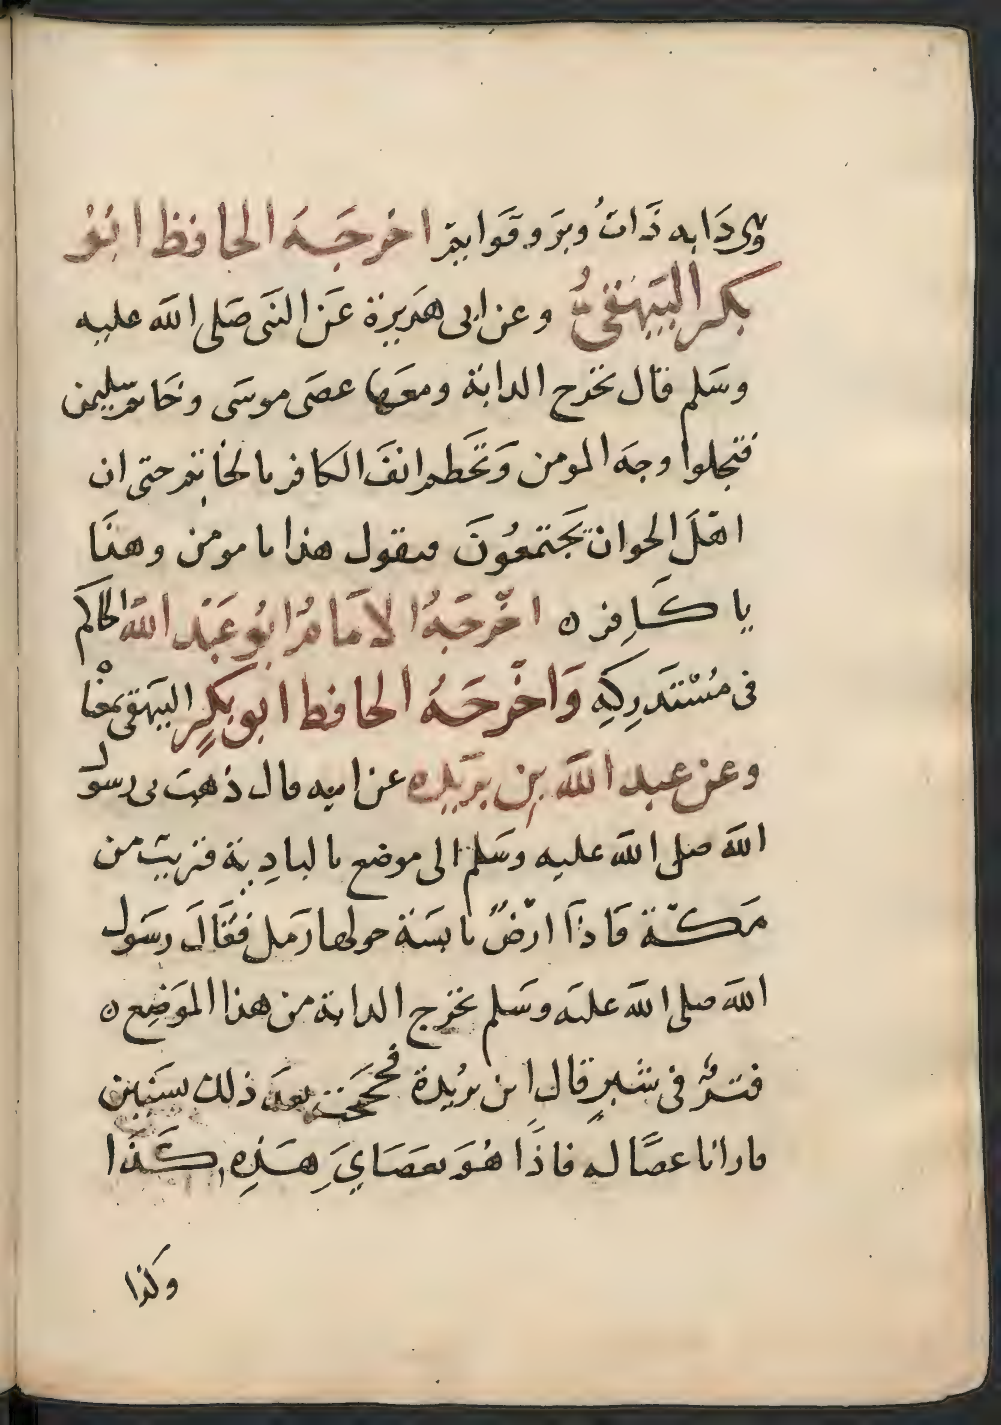 وهى دَابه ذَاتُ وبرَ وقَوايمَ اخرجَهَ الحافظ ابُوْ
بكر البَيهَقىُّ وعن ابى هَريرة عَن النبَى صَلى الله عليه
وسَلم قال تخرج الدابة ومعَها عصَى موسَى وخَاتم سليمن
فتجلوا وجهَ المومن وَتخَطم انفَ الكافر بالخاتم حتى ان
اهْلَ الحوان يَجتَمعُونَ فيقول هذا يا مومن وهذَا
يا كَافِر ٥ اخْرجَهُ الامَامُ ابُو عَبْد الله الحاكم
فى مُسْتَدرِكِهِ وَاخْرجَهُ الحافظ ابو بكرٍ البيَهقى بمعْنا٥
وعن عبد الله بن برَيده عن ابيه قال ذهبَ بى رسول
الله صلى الله عليه وسَلم الى موضع بالبادِية قريبٌ من
مَكّة فَاذَا ارْضٌ يابسَة حولها رَمل فقَالَ رسَول
الله صلى الله عليه وسَلم تخرج الدابة من هذا الموَضِع ٥
فترٌ فى شبرٍ قال ابن برُيدة فحججَت بعدَ ذلك بسَنِين
فارانا عصًا له فاذَا هُوَ بعَصَايَ هَذِه كَذَا
وكذا